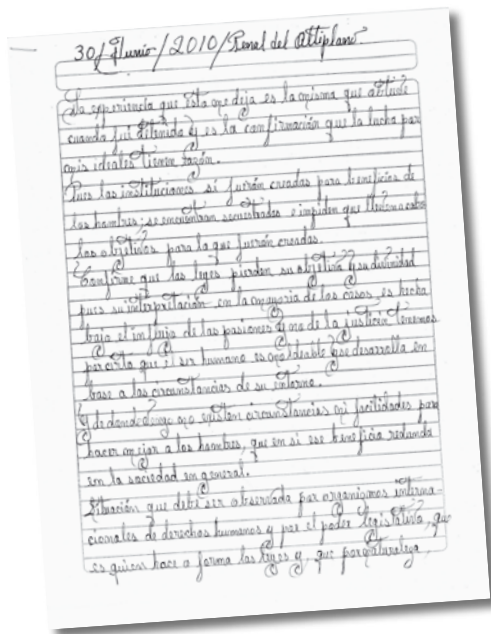 30/Junio/2010/Penal del Altiplano.
La experiencia que ésta me deja es la misma que
cuando fui detenido y es la confirmación que la lucha por
mis ideales tienen razón.
Pues las instituciones si fuerón creadas para beneficio de
los hombres; se encuentran secuestradas e impiden que lleven a cabo
los objetivos para la que fuerón creadas.
Confirme que las leyes pierden su objetivo y su divinidad
pues su interpretación en la mayoria de los casos, es hecha
bajo el influjo de las pasiones y no de la justicia tenemos
por cierto que el ser humano es moldeable y se desarrolla en
base a las circunstancias de su entorno.
Y de donde vengo no existen circunstancias ni facilidades para
hacer mejor a los hombres, que en si ese beneficio redunda
en la sociedad en general.
Situación que debe ser observada por organismos interna-
cionales de derechos humanos y por el poder legislativo, que
es quien hace o forma las leyes y, que por naturaleza,